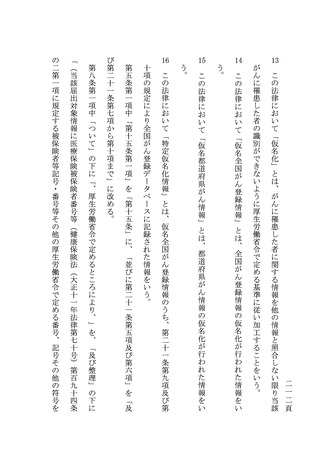 二一二頁
13　この法律において「仮名化」とは、がんに罹患した者に関する情報を他の情報と照合しない限り当該
がんに罹患した者の識別ができないように厚生労働省令で定める基準に従い加工することをいう。
14　この法律において「仮名全国がん登録情報」とは、全国がん登録情報の仮名化が行われた情報をい
う。
15　この法律において「仮名都道府県がん情報」とは、都道府県がん情報の仮名化が行われた情報をい
う。
16　この法律において「特定仮名化情報」とは、仮名全国がん登録情報のうち、第二十一条第九項及び第
十項の規定により全国がん登録データベースに記録された情報をいう。
第五条第一項中「第十五条第一項」を「第十五条」に、「並びに第二十一条第五項及び第六項」を「及
び第二十一条第七項から第十項まで」に改める。
第八条第一項中「ついて」の下に「、厚生労働省令で定めるところにより、」を、「及び整理」の下に
「（当該届出対象情報に医療保険被保険者番号等（健康保険法（大正十一年法律第七十号）第百九十四条
の二第一項に規定する被保険者等記号・番号等その他の厚生労働省令で定める番号、記号その他の符号を